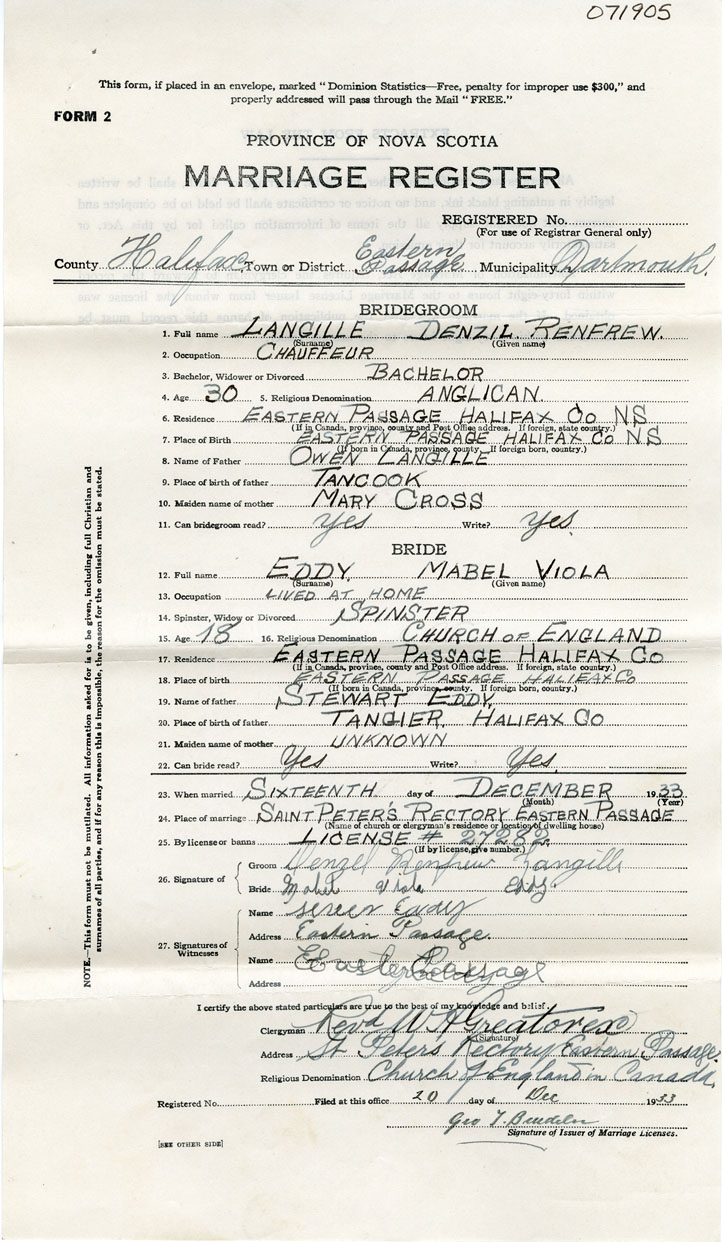 071905
This form, if placed in an envelope, marked "Dominion Statistics—Free, penalty for improper use $300," and
properly addressed will pass through the Mail "FREE."
FORM 2
PROVINCE OF NOVA SCOTIA
MARRIAGE REGISTER
REGISTERED No.
(For use of Registrar General only)
County Halifax Town or District Eastern Passage Municipality Dartmouth.
BRIDEGROOM
1. Full name LANGILLE DENZIL RENFREW.
(Surname) (Given name)
2. Occupation CHAUFFEUR
3. Bachelor, Widower or Divorced BACHELOR
4. Age 30 5. Religious Denomination ANGLICAN.
6. Residence EASTERN PASSAGE HALIFAX Co NS
(If in Canada, province, county and Post Office address. If foreign, state country.)
7. Place of Birth EASTERN PASSAGE HALIFAX Co NS
(If born in Canada, province, county. If foreign born, country.)
8. Name of Father OWEN LANGILLE
9. Place of birth of father TANCOOK
10. Maiden name of mother MARY CROSS
11. Can bridegroom read? yes Write? Yes.
BRIDE
12. Full name EDDY. MABEL VIOLA
(Surname) (Given name)
13. Occupation LIVED AT HOME
14. Spinster, Widow or Divorced SPINSTER
15. Age 18 16. Religious Denomination CHURCH OF ENGLAND
17. Residence EASTERN PASSAGE HALIFAX Co
(If in Canada, province, county and Post Office address. If foreign, state country.)
18. Place of birth EASTERN PASSAGE HALIFAX Co
(If born in Canada, province, county. If foreign born, country.)
19. Name of father STEWART EDDY.
20. Place of birth of father TANGIER, HALIFAX Co
21. Maiden name of mother UNKNOWN
22. Can bride read? Yes Write? Yes.
23. When married SIXTEENTH day of DECEMBER 1933
(Month) (Year)
24. Place of marriage SAINT PETER'S RECTORY EASTERN PASSAGE
(Name of church or clergyman's residence or location of dwelling house)
25. By license or banns LICENSE # 27282.
(If by license, give number.)
26. Signature of
Groom Denzel Renfrew Langille
Bride Mabel Viola Eddy.
27. Signatures of Witnesses
Name
Address Eastern Passage.
Name
Address
I certify the above stated particulars are true to the best of my knowledge and belief.
Clergyman Revd W H Greatorex
(Signature)
Address St Peter's Rectory Eastern Passage
Religious Denomination Church of England in Canada.
Registered No. Filed at this office 20 day of Dec 1933
Geo T.
Signature of Issuer of Marriage Licenses.
[SEE OTHER SIDE]
NOTE.—This form must not be mutilated. All information asked for is to be given, including full Christian and
surnames of all parties, and if for any reason this is impossible, the reason for the omission must be stated.